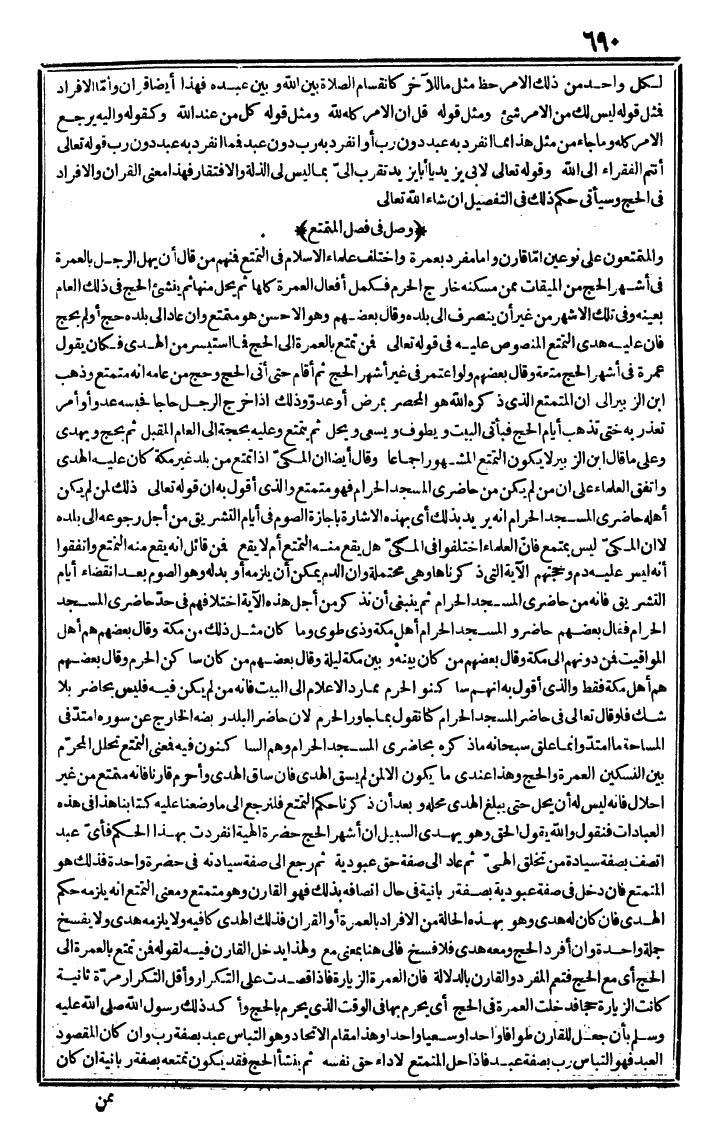 ٦٩٠
لكل واحد من ذلك الامر حظ مثل ماللآخر كانقسام الصلاة بين الله وبين عبده فهذا أيضاقران وأمّا الافراد
فمثل قوله ليس لك من الامر شئ ومثل قوله قل ان الامر كله لله ومثل قوله كل من عند الله وكقوله واليه يرجع
الامر كله وماجاء من مثل هذا مما انفرد به عبد دون رب أو انفرد به رب دون عبد فما انفرد به عبد دون رب قوله تعالى
أنتم الفقراء الى الله وقوله تعالى لابى يزيد ياأبا يزيد تقرب الىّ بماليس لى الذلة والافتقار فهذا معنى القران والافراد
فى الحج وسيأتى حكم ذلك فى التفصيل ان شاء الله تعالى
﴿وصل فى فصل المتمتع﴾
والمتمتعون على نوعين امّا قارن وامامفرد بعمرة واختلف علماء الاسلام فى التمتع فمنهم من قال أن يهل الرجل بالعمرة
فى أشهر الحج من الميقات ممن مسكنه خارج الحرم فكمل أفعال العمرة كلها ثم يحل منهاثم ينشئ الحج فى ذلك العام
بعينه وفى تلك الاشهر من غير أن ينصرف الى بلده وقال بعضهم وهو الاحسن هو متمتع وان عاد الى بلده حج أولم يحج
فان عليه هدى التمتع المنصوص عليه فى قوله تعالى فمن تمتع بالعمرة الى الحج فما استيسر من الهدى فكان يقول
عمرة فى أشهر الحج متعة وقال بعضهم ولو اعتمر فى غير أشهر الحج ثم أقام حتى أتى الحج وحج من عامه انه متمتع وذهب
ابن الزبير الى ان المتمتع الذى ذكره الله هو المحصر بمرض أو عدوّ وذلك اذا خرج الرجل حاجا فحبسه عدو أو أمر
تعذر به حتى تذهب أيام الحج فيأتى البيت ويطوف ويسعى ويحل ثم يتمتع وعليه بحجة الى العام المقبل ثم يحج ويهدى
وعلى ماقال ابن الزبير لا يكون التمتع المشهور اجماعا وقال أيضا ان المكىّ اذا تمتع من بلد غير مكة كان عليه الهدى
واتفق العلماء على ان من لم يكن من حاضرى المسجد الحرام فهو متمتع والذى أقول به ان قوله تعالى ذلك لمن لم يكن
أهله حاضرى المسجد الحرام انه يريد بذلك أى بهذه الاشارة باجازة الصوم فى أيام التشريق من أجل رجوعه الى بلده
لا ان المكىّ ليس بمتمتع فانّ العلماء اختلفوا فى المكىّ هل يقع منه التمتع أم لا يقع فمن قائل انه يقع منه التمتع واتفقوا
أنه ليس عليه دم وحجتهم الآية التى ذكرناها وهى محتملة وان الدم يمكن أن يلزمه أو بدله وهو الصوم بعد انقضاء أيام
التشريق فانه من حاضرى المسجد الحرام ثم ينبغى أن نذكر من أجل هذه الآية اختلافهم فى حدّ حاضرى المسجد
الحرام فقال بعضهم حاضرو المسجد الحرام أهل مكة وذى طوى وما كان مثل ذلك من مكة وقال بعضهم هم أهل
المواقيت فمن دونهم الى مكة وقال بعضهم من كان بينه وبين مكة ليلة وقال بعضهم من كان ساكن الحرم وقال بعضهم
هم أهل مكة فقط والذى أقول به انهم ساكنو الحرم ممارد الاعلام الى البيت فانه من لم يكن فيه فليس بحاضر بلا
شك فلو قال تعالى فى حاضر المسجد الحرام كنا نقول بما جاور الحرم لان حاضر البلد ربضه الخارج عن سوره امتدّ فى
المساحة ما امتدّ وانما علق سبحانه ماذكره بحاضرى المسجد الحرام وهم الساكنون فيه فمعنى التمتع تحلل المحرّم
بين النسكين العمرة والحج وهذا عندى ما يكون الا لمن لم يسق الهدى فان ساق الهدى وأحرم قارنا فانه متمتع من غير
احلال فانه ليس له أن يحل حتى يبلغ الهدى محله وبعد أن ذكرنا حكم التمتع فلنرجع الى ما وضعنا عليه كتابنا هذا فى هذه
العبادات فنقول والله يقول الحق وهو يهدى السبيل ان أشهر الحج حضرة الهية انفردت بهذا الحكم فأىّ عبد
اتصف بصفة سيادة من تخلق الهىّ ثم عاد الى صفة حق عبودية ثم رجع الى صفة سيادته فى حضرة واحدة فذلك هو
المتمتع فان دخل فى صفة عبودية بصفة ربانية فى حال اتصافه بذلك فهو القارن وهو متمتع ومعنى التمتع انه يلزمه حكم
الهدى فان كان له هدى وهو بهذه الحالة من الافراد بالعمرة أو القران فذلك الهدى كافيه ولا يلزمه هدى ولا يفسخ
جملة واحدة وان أفرد الحج ومعه هدى فلا فسخ فالى هنا بمعنى مع ولهذا يدخل القارن فيه لقوله فمن تمتع بالعمرة الى
الحج أى مع الحج فتعم المفرد والقارن بالدلالة فان العمرة الزيارة فاذا قصدت على التكرار وأقل التكرار مرّة ثانية
كانت الزيارة حجا فدخلت العمرة فى الحج أى يحرم بها فى الوقت الذى يحرم بالحج وأكد ذلك رسول الله صلى الله عليه
وسلم بأن جعل للقارن طوافا واحدا وسعيا واحدا وهذا مقام الاتحاد وهو التباس عبد بصفة رب وان كان المقصود
العبد فهو التباس رب بصفة عبد فاذا حل المتمتع لاداء حق نفسه ثم ينشأ الحج فقد يكون تمتعه بصفة ربانية ان كان
ممن